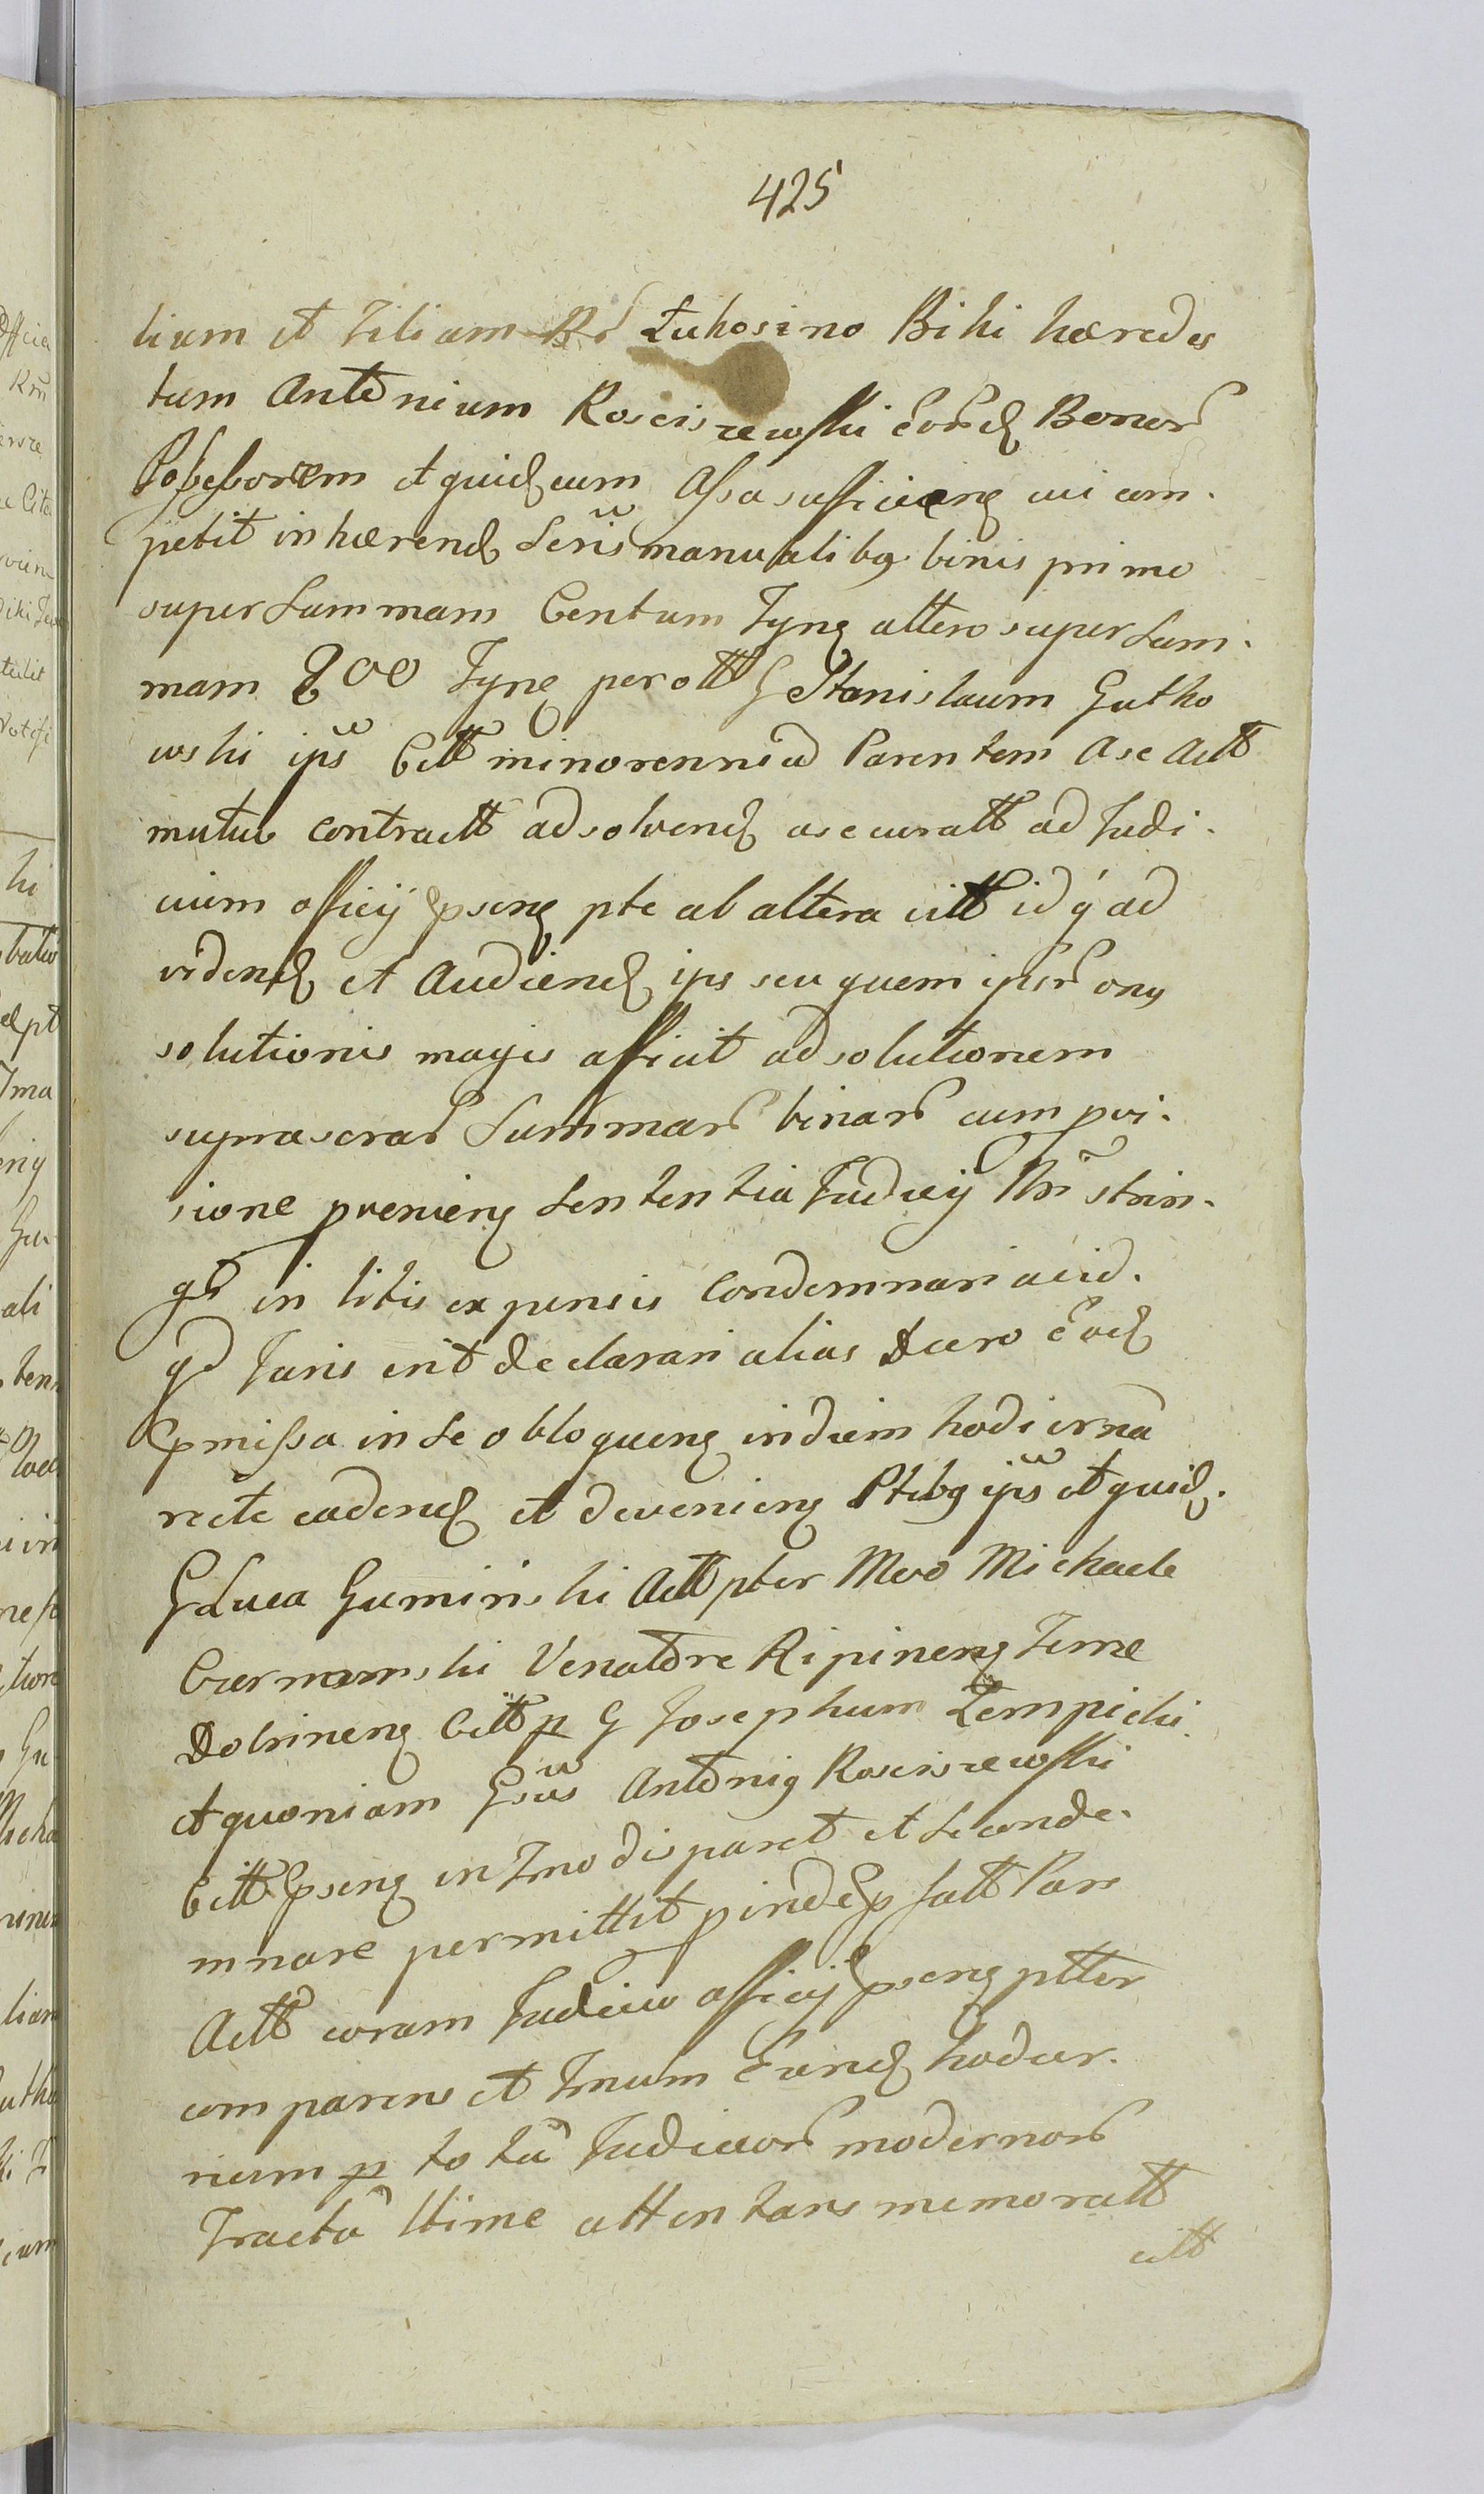 425
lium et Filiam Bd Łukosino Biki hæredes
tum Antonium Roscisrewski eord Bonor
Possessorem et quid cum Assa sufficien cui com.
petit inhærend Scris manualibq binis primo
super Summam Centum Tyn altero super Sum.
mam 200 Tyn per olt G Stanislaum Gutko
wski ips Citt minorennis ad Parentem Ase Actt
mutuo contractt ad solvend asecuratt ad Judi.
cium officij psens pte ab altera citt id q ad
vidend et Audiend ips seu quem ipsr onq
solutionis magis afficit ad solutionem
suprascrar Summar binar cum pvi.
sione pveniens Sententia Judicij Nri strin.
gd in litis expensis Condemnari ac id.
qd Juris erit declarari alias Decro eod
pmissa in se obloquens in diem hodierna
recte cadend et devenien Ptibq ips et quid.
G Luca Guminski Actt pter Mco Michaele
Czernamski Venatore Ripinens Terræ
Dobrinens Citt p G Josephum Zempicki
et quoniam Gsus Antoniq Roscisrewski
Citt psens in Tmo disparet et se conde.
mnare permittit pinde p fatt Pars
Actt coram Judicio officij psens ptter
comparens et Tmum Eund hodier.
num p tota Judicior modernor
Tracta ltime attentans memoratt
citt